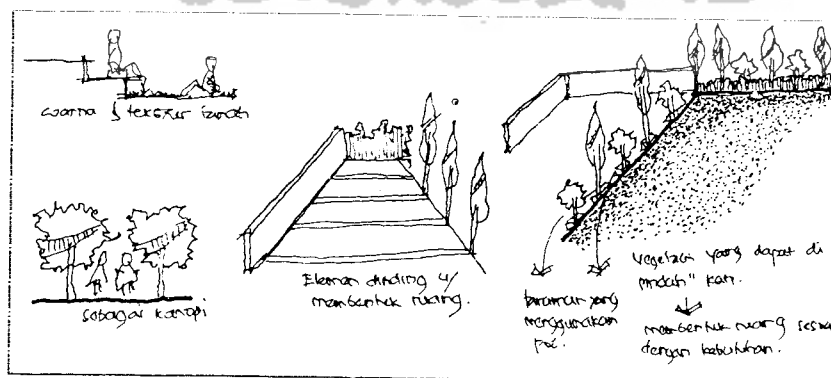 warna & tekstur tanah
sebagai kanopi
Elemen dinding u/
membentuk ruang.
tanaman yang
menggunakan
pot.
vegetasi yang dapat di
pindah" kan.
membentuk ruang sesuai
dengan kebutuhan.